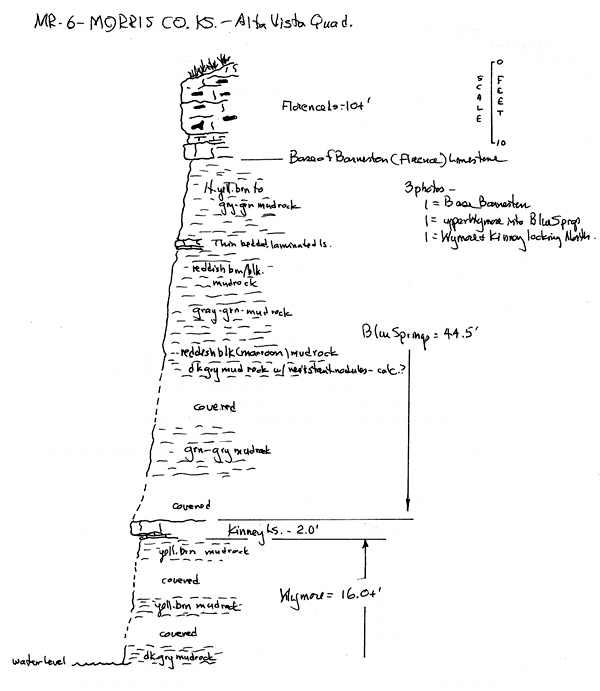 MR-6-MORRIS CO. KS. - Alta Vista Quad.
0
SCALE
FEET
10
Florence ls = 10+'
Base of Barneston (Florence) Limestone
lt. yell. brn to
gry-grn mudrock
3 photos -
1 = Base Barneston
1 = upper Wymore into Blue Sprgs
1 = Wymore & Kinney looking North.
Thin bedded laminated ls.
reddish brn/blk.
mudrock
gray-grn-mudrock
Blue Springs = 44.5'
reddish blk (maroon) mudrock
dk gry mud rock w/ resistant nodules - calc.?
covered
grn-gry mudrock
covered
Kinney Ls. - 2.0'
yell. brn mudrock
covered
Wymore = 16.0+'
yell. brn mudrock
covered
water level
dk gry mudrock